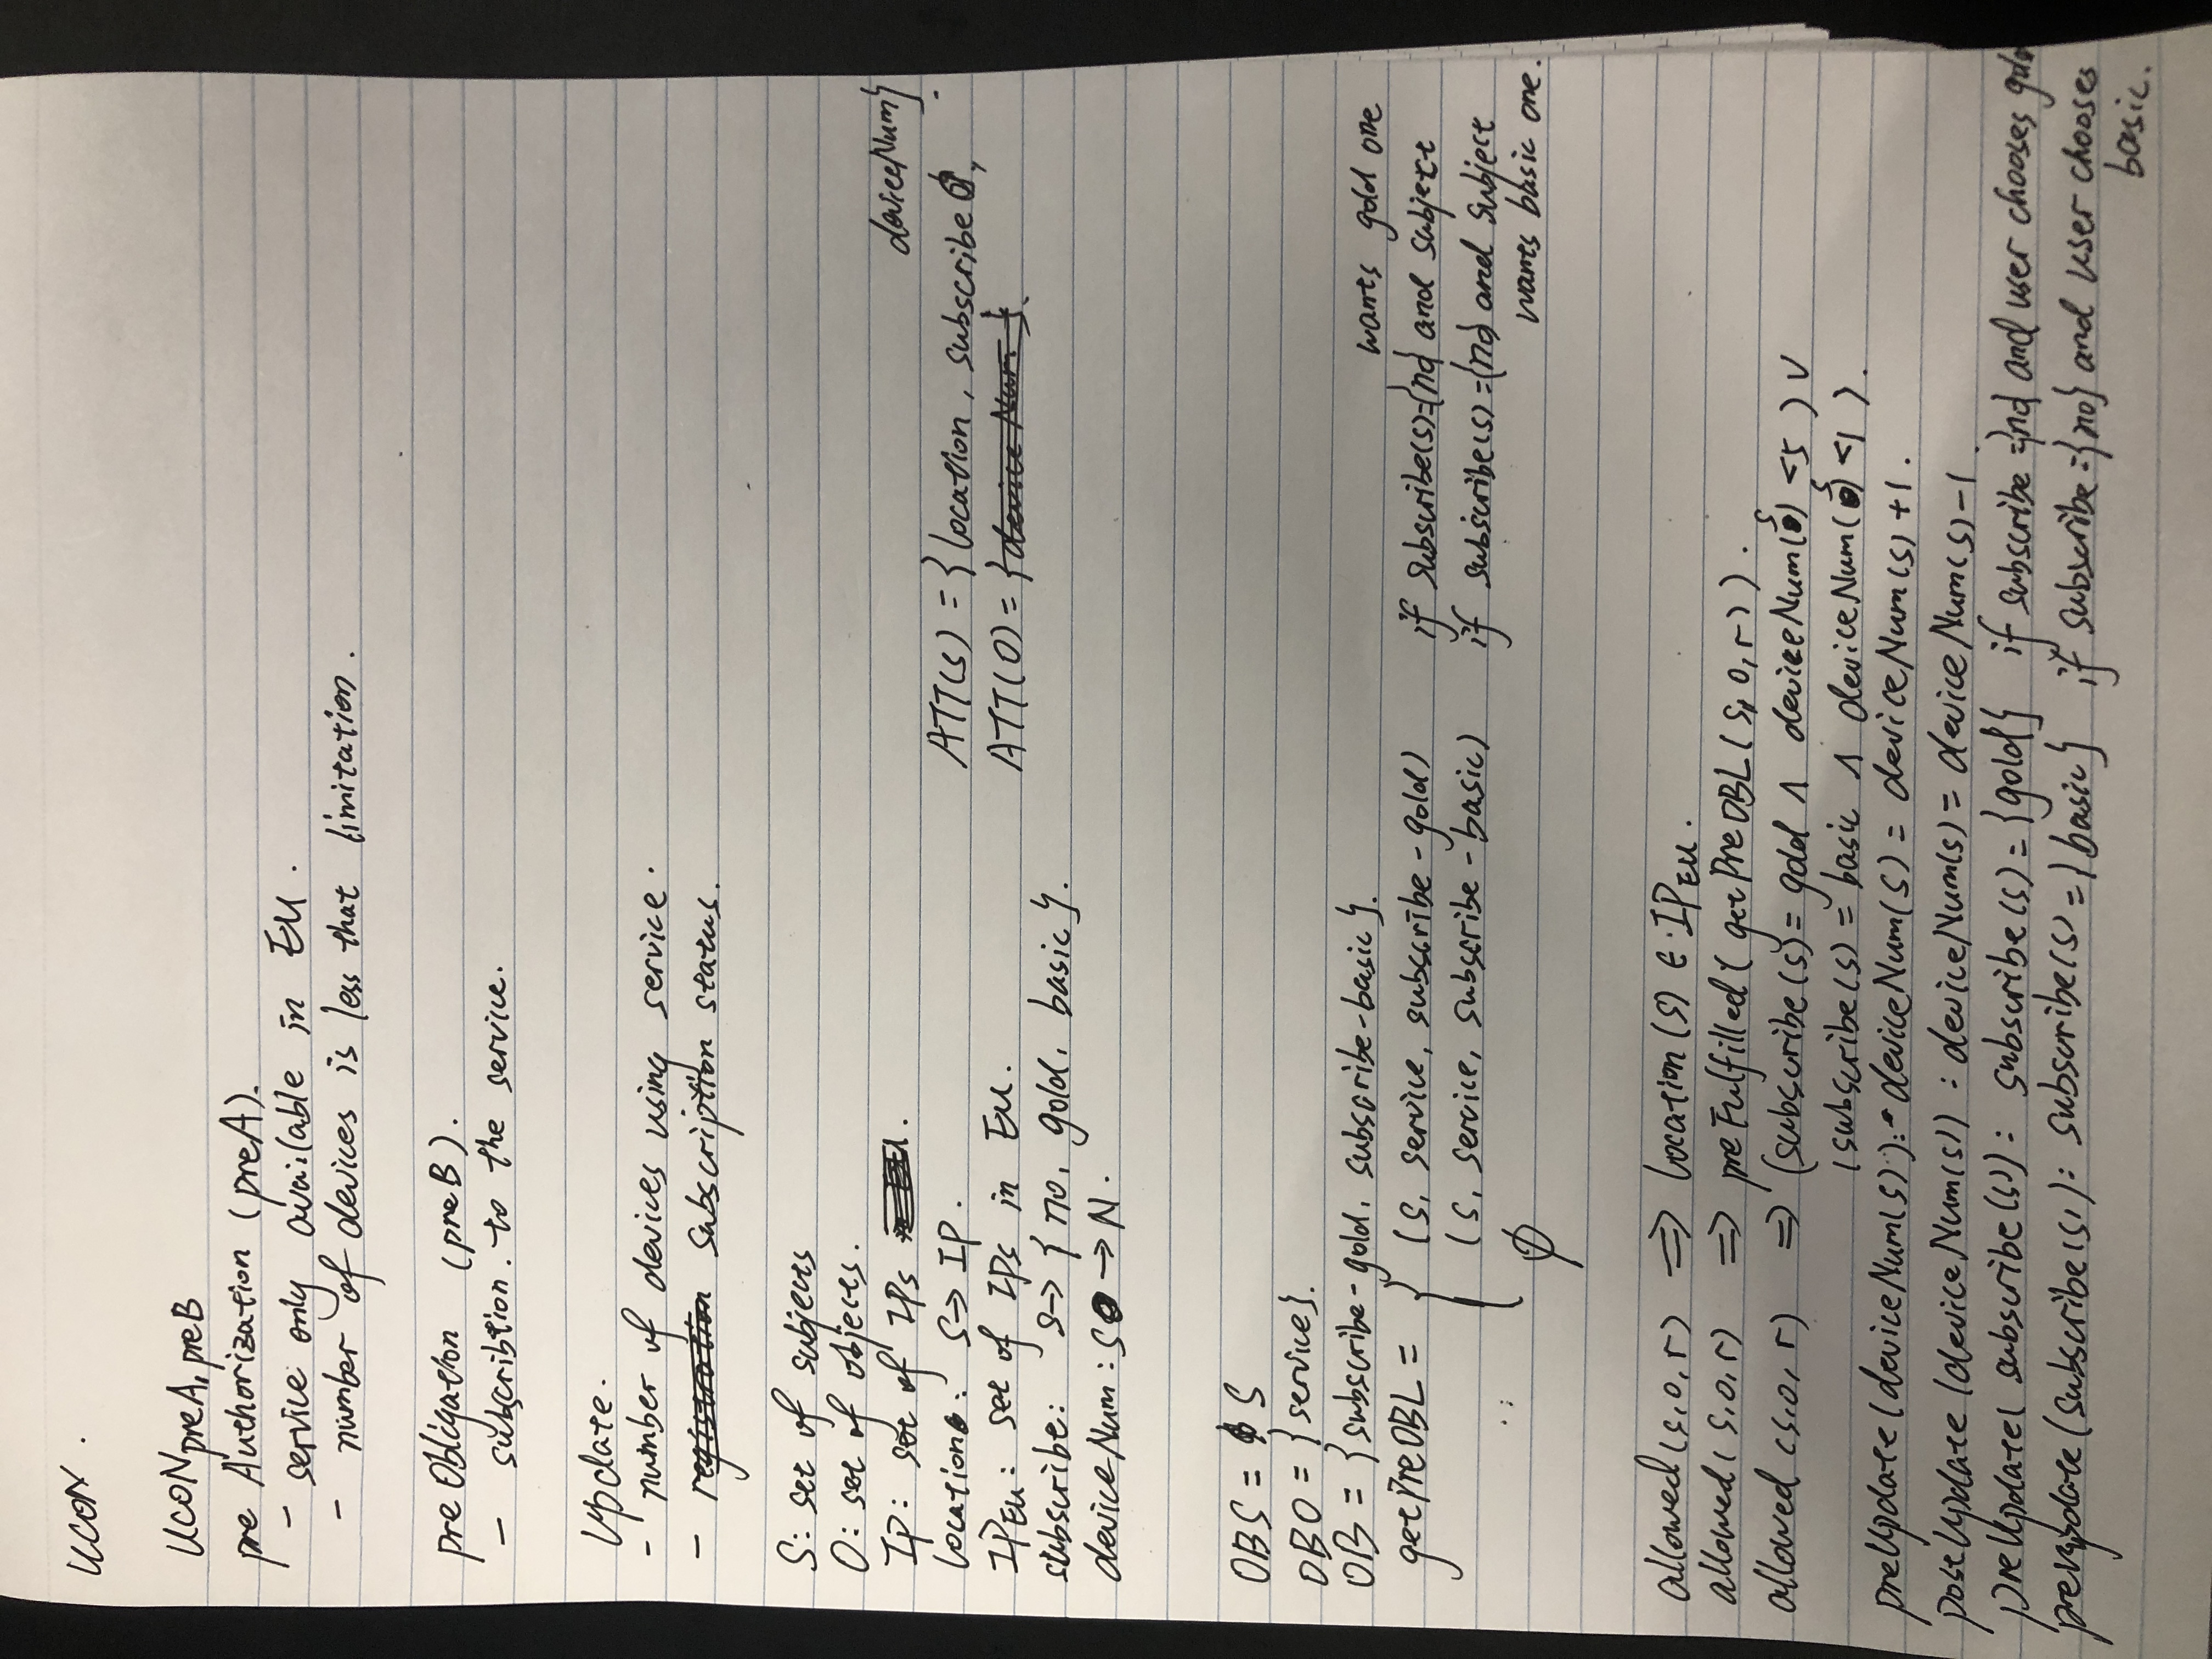 UCON.
UCON preA, preB
pre Authorization (preA).
- service only available in EU.
- number of devices is less that limitation.
pre Obligation (preB).
- subscribtion. to the service.
Update.
- number of devices using service.
- registration subscription status.
S: set of subjects
O: set of objects.
IP: set of IPs
location: S→ IP.
IP_EU: set of IPs in EU.
subscribe: S→ {no, gold, basic}.
deviceNum: S → N.
deviceNum}
ATT(S) = {location, subscribe,
ATT(O) = {deviceNum}.
OBS = S
OBO = {service}.
OB = {subscribe-gold, subscribe-basic}.
wants gold one
getPreOBL = { (S, service, subscribe-gold) if subscribe(s)={no} and subject
(S, service, subscribe-basic) if subscribe(s)={no} and subject
wants basic one.
∅
allowed(s,o,r) ⇒ location(s) ∈ IP_EU.
allowed(s,o,r) ⇒ preFulfilled(getPreOBL(s,o,r)).
allowed(s,o,r) ⇒ (subscribe(s)= gold ∧ deviceNum(s) <5 ) ∨
(subscribe(s) = basic ∧ deviceNum(s) <1 ).
preUpdate(deviceNum(s)): deviceNum(s) = deviceNum(s) +1.
postUpdate(deviceNum(s)) : deviceNum(s)= deviceNum(s)-1.
preUpdate( subscribe(s)): subscribe(s)= {gold} if subscribe ={no} and user chooses gold
preUpdate(subscribe(s)): subscribe(s) = {basic} if subscribe={no} and user chooses
basic.